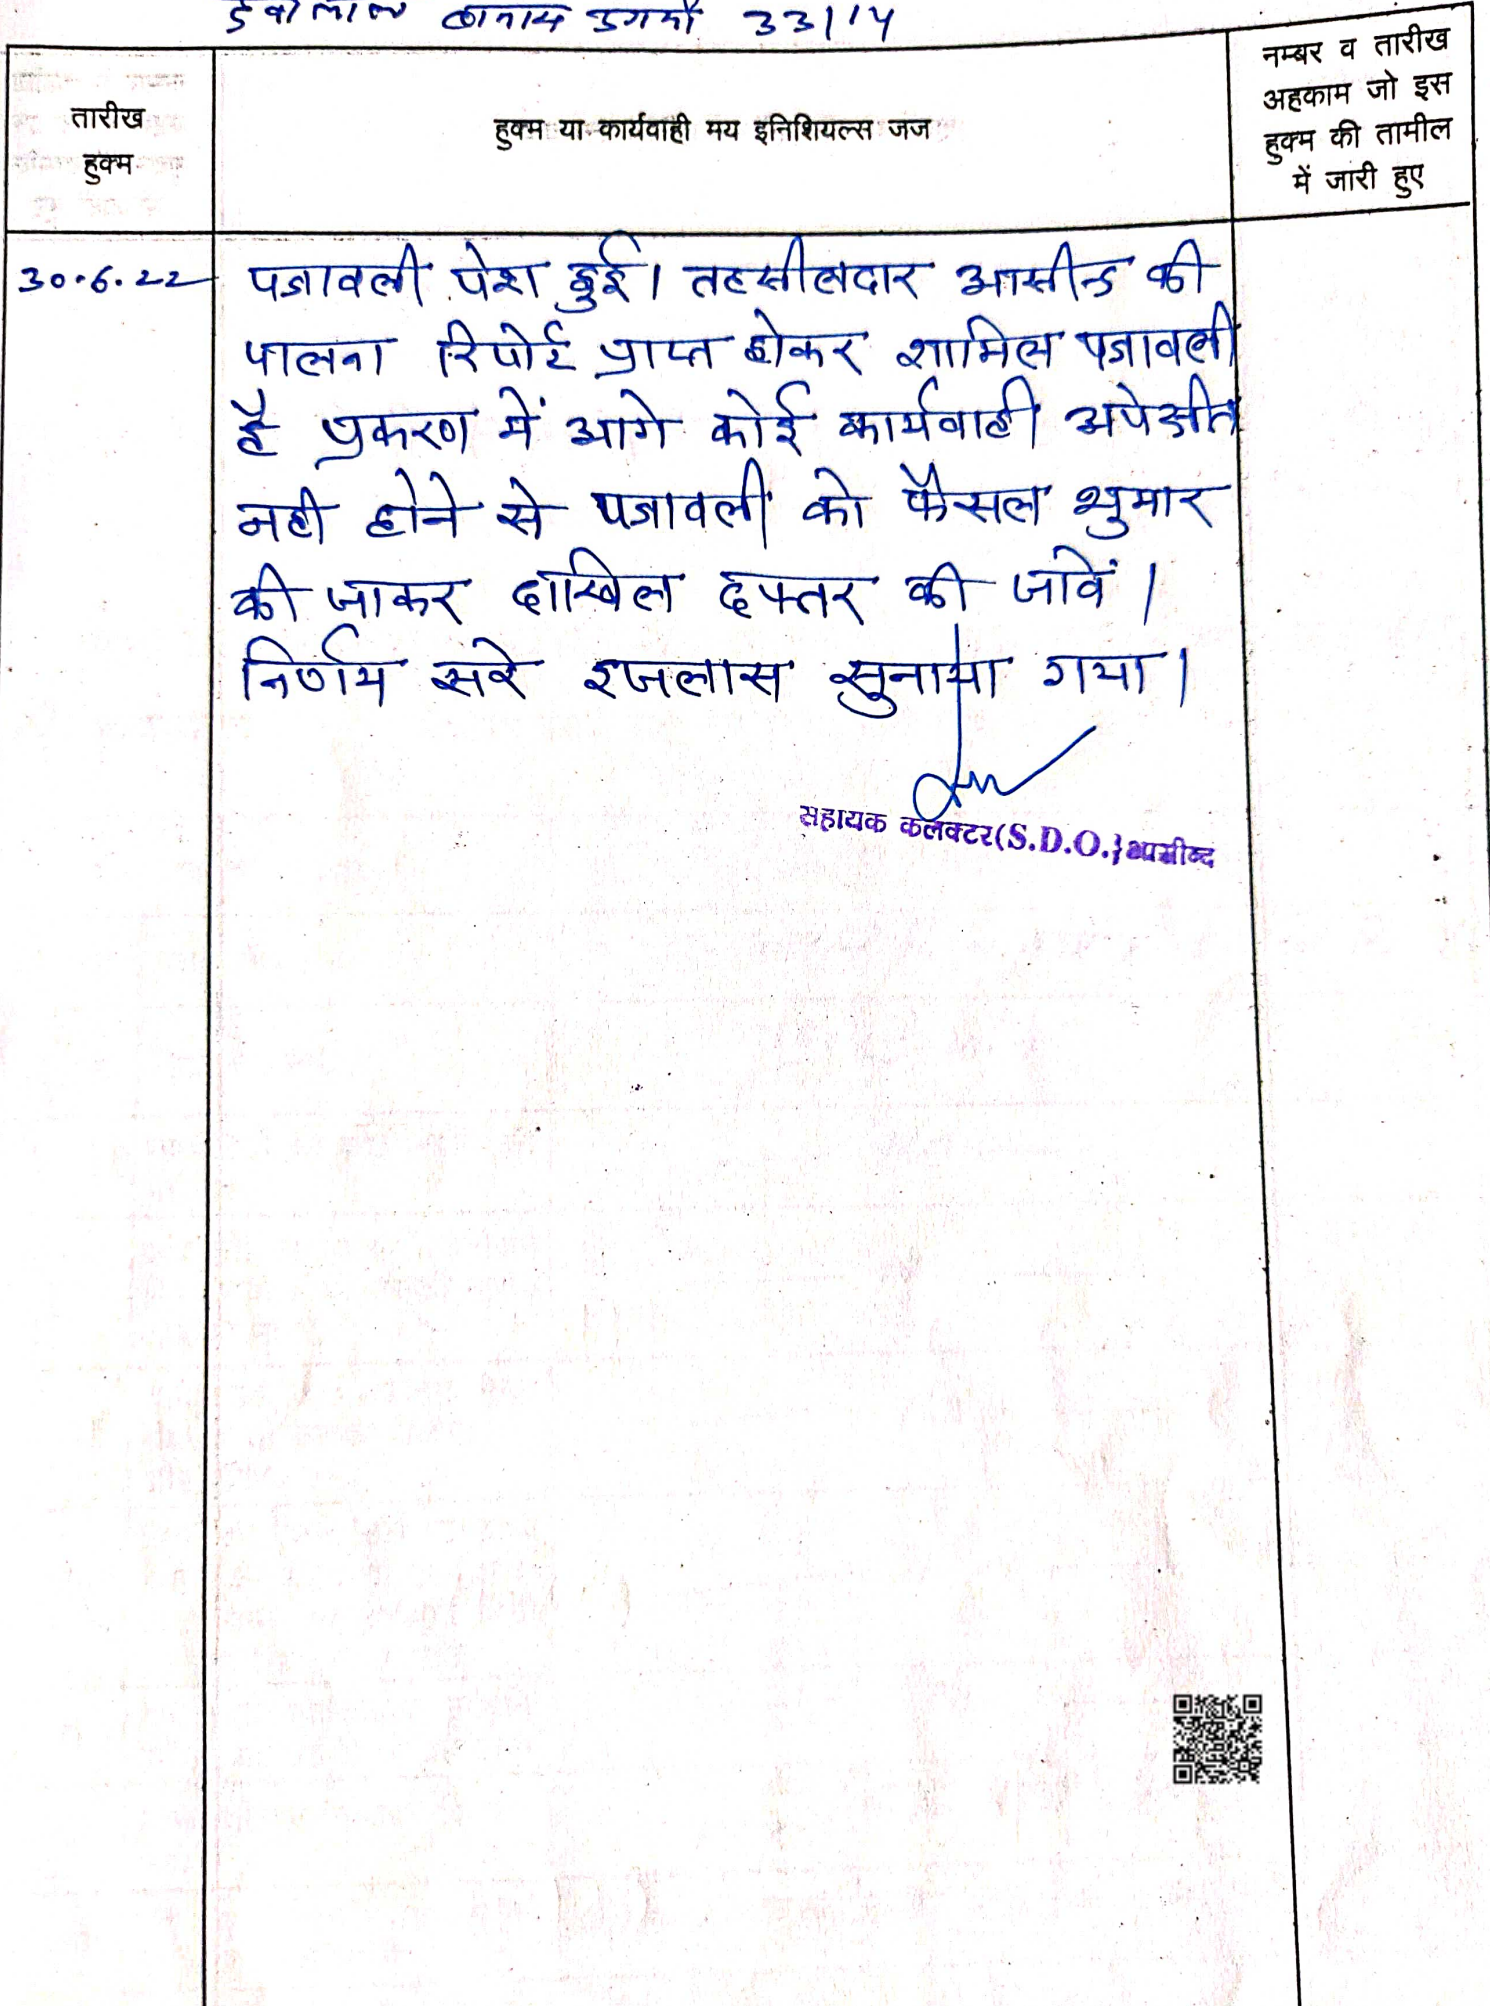 बनाम 33/14
तारीख
हुक्म
हुक्म या कार्यवाही मय इनिशियल्स जज
नम्बर व तारीख
अहकाम जो इस
हुक्म की तामील
में जारी हुए
30.6.22
पत्रावली पेश हुई। तहसीलदार आसीन्द की
पालना रिपोर्ट प्राप्त होकर शामिल पत्रावली
है प्रकरण में आगे कोई कार्यवाही अपेक्षीत
नही होने से पत्रावली को फैसल शुमार
की जाकर दाखिल दफ्तर की जावें।
निर्णय सरे इजलास सुनाया गया।
सहायक कलक्टर(S.D.O.) आसीन्द